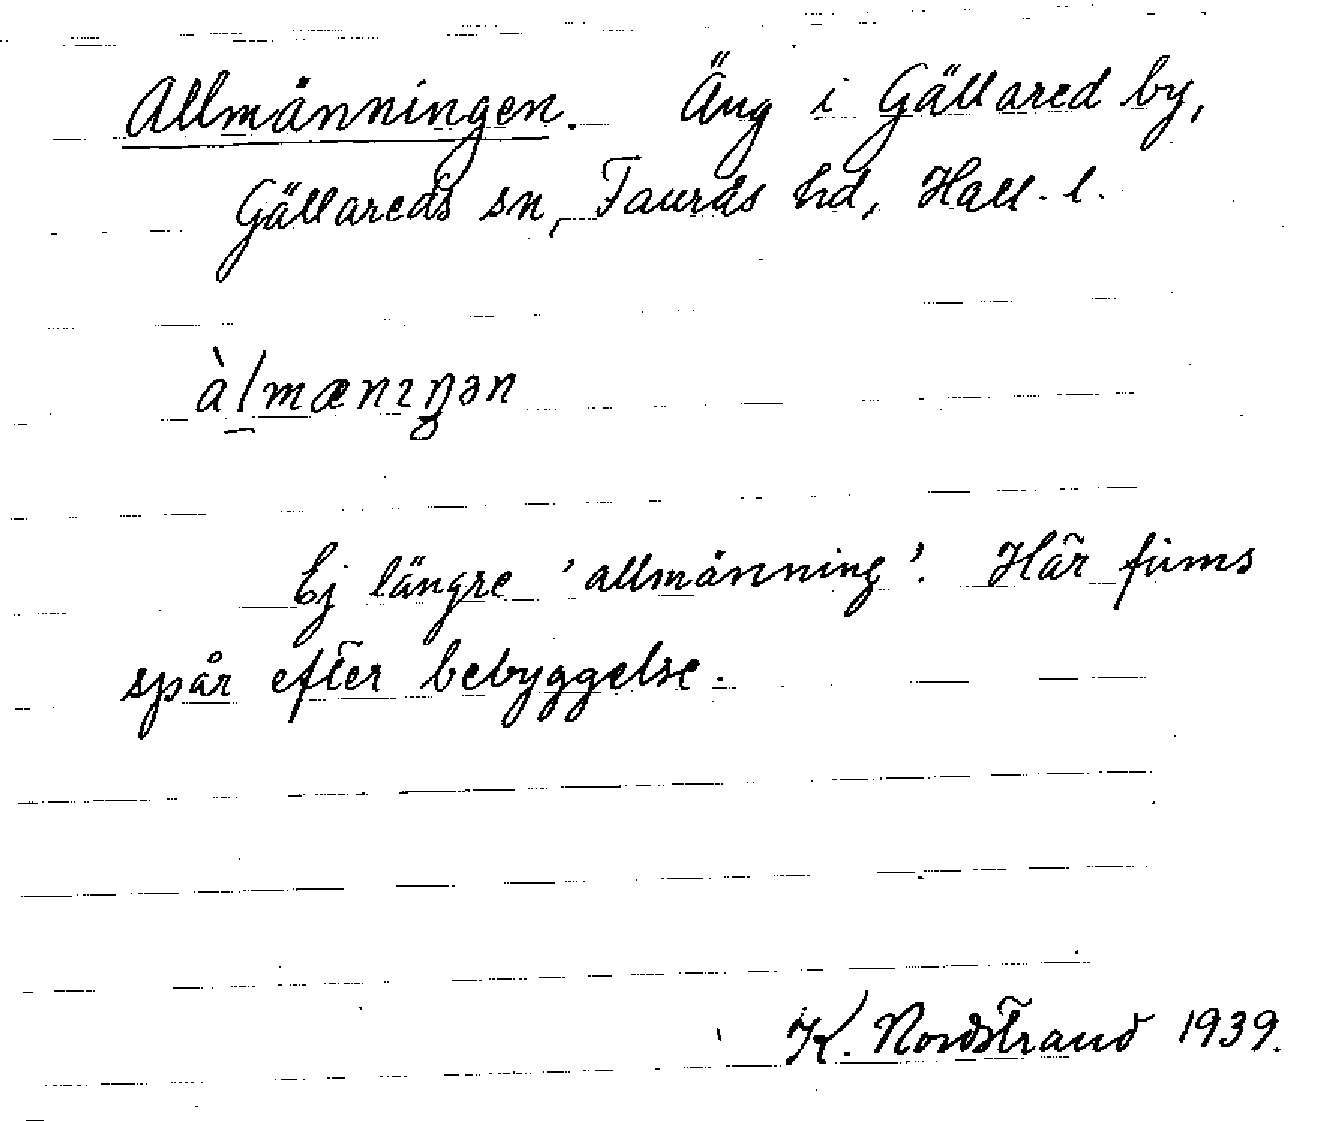 Allmänningen. Äng i Gällared by,
Gällareds sn, Faurås hd, Hall. l.
àlmænıŋən
Ej längre 'allmänning'. Här finns
spår efter bebyggelse.
K. Nordstrand 1939.